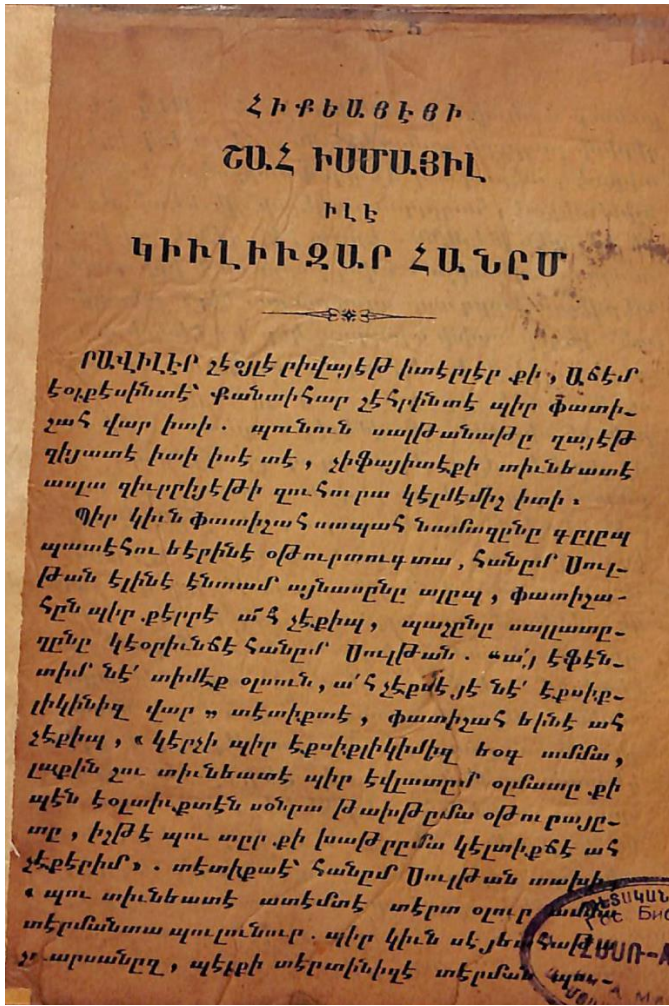 ՀԻՔԵԱՅԷՅԻ
ՇԱՀ ԻՍՄԱՅԻԼ
ԻԼԷ
ԿԻՒԼԻՒԶԱՐ ՀԱՆԸՄ
ՐԱՎԻԼԷՐ շէօյլէ րիվայէթ իտէրլէր քի, Աճէմ
էօլքէսինտէ՝ Քանտիհար շէհրինտէ պիր փատի-
շահ վար իտի. պունուն սալթանաթը ղայէթ
զիյատէ իտի իսէ տէ, չիֆայիտէքի տիւնեատէ
ասլա զիւրրիյէթի զուհուրա կէլմէմիշ իտի։
Պիր կիւն փատիշահ սապահ նամազընը գըլըպ
պատէհու եէրինէ օթուրտուգտա, հանըմ Սուլ-
թան էլինէ էնտամ այնասընը ալըպ, փատիշա-
հըն պիր քէրրէ ա՛հ չէքիպ, պաշընը սալլատը-
ղընը կէօրիւնճէ հանըմ Սուլթան. «ա՛յ էֆէն-
տիմ նէ՛ տիմէք օլսուն, ա՛հ չէքմէյէ նէ՛ էքսիք-
լիկինիզ վար» տէտիքտէ, փատիշահ եինէ ահ
չէքիպ, «կէրչի պիր էքսիքլիկիմիզ եօգ ամմա,
լաքին շու տիւնեատէ պիր էվլատըմ օլմատը քի
պէն էօլտիւքտէն սօնրա թախթըմա օթուրայը-
տը, իշթէ պու տըր քի խաթըրըմա կէլտիքճէ ահ
չէքէրիմ». տէտիքտէ՝ հանըմ Սուլթան տախի,
«պու տիւնեատէ ատէմտէ տէրտ օլուր ամմա
տէրմանտա պուլունուր. պիր կիւն սէյեահաթա
չըգարսանըզ, պէլքի տէրտինիզէ տէրման պու-